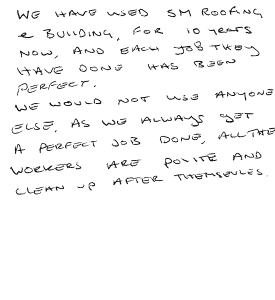 WE HAVE USED SM ROOFING
& BUILDING, FOR 10 YEARS
NOW, AND EACH JOB THEY
HAVE DONE HAS BEEN
PERFECT.
WE WOULD NOT USE ANYONE
ELSE, AS WE ALWAYS GET
A PERFECT JOB DONE, ALL THE
WORKERS ARE POLITE AND
CLEAN UP AFTER THEMSELVES.